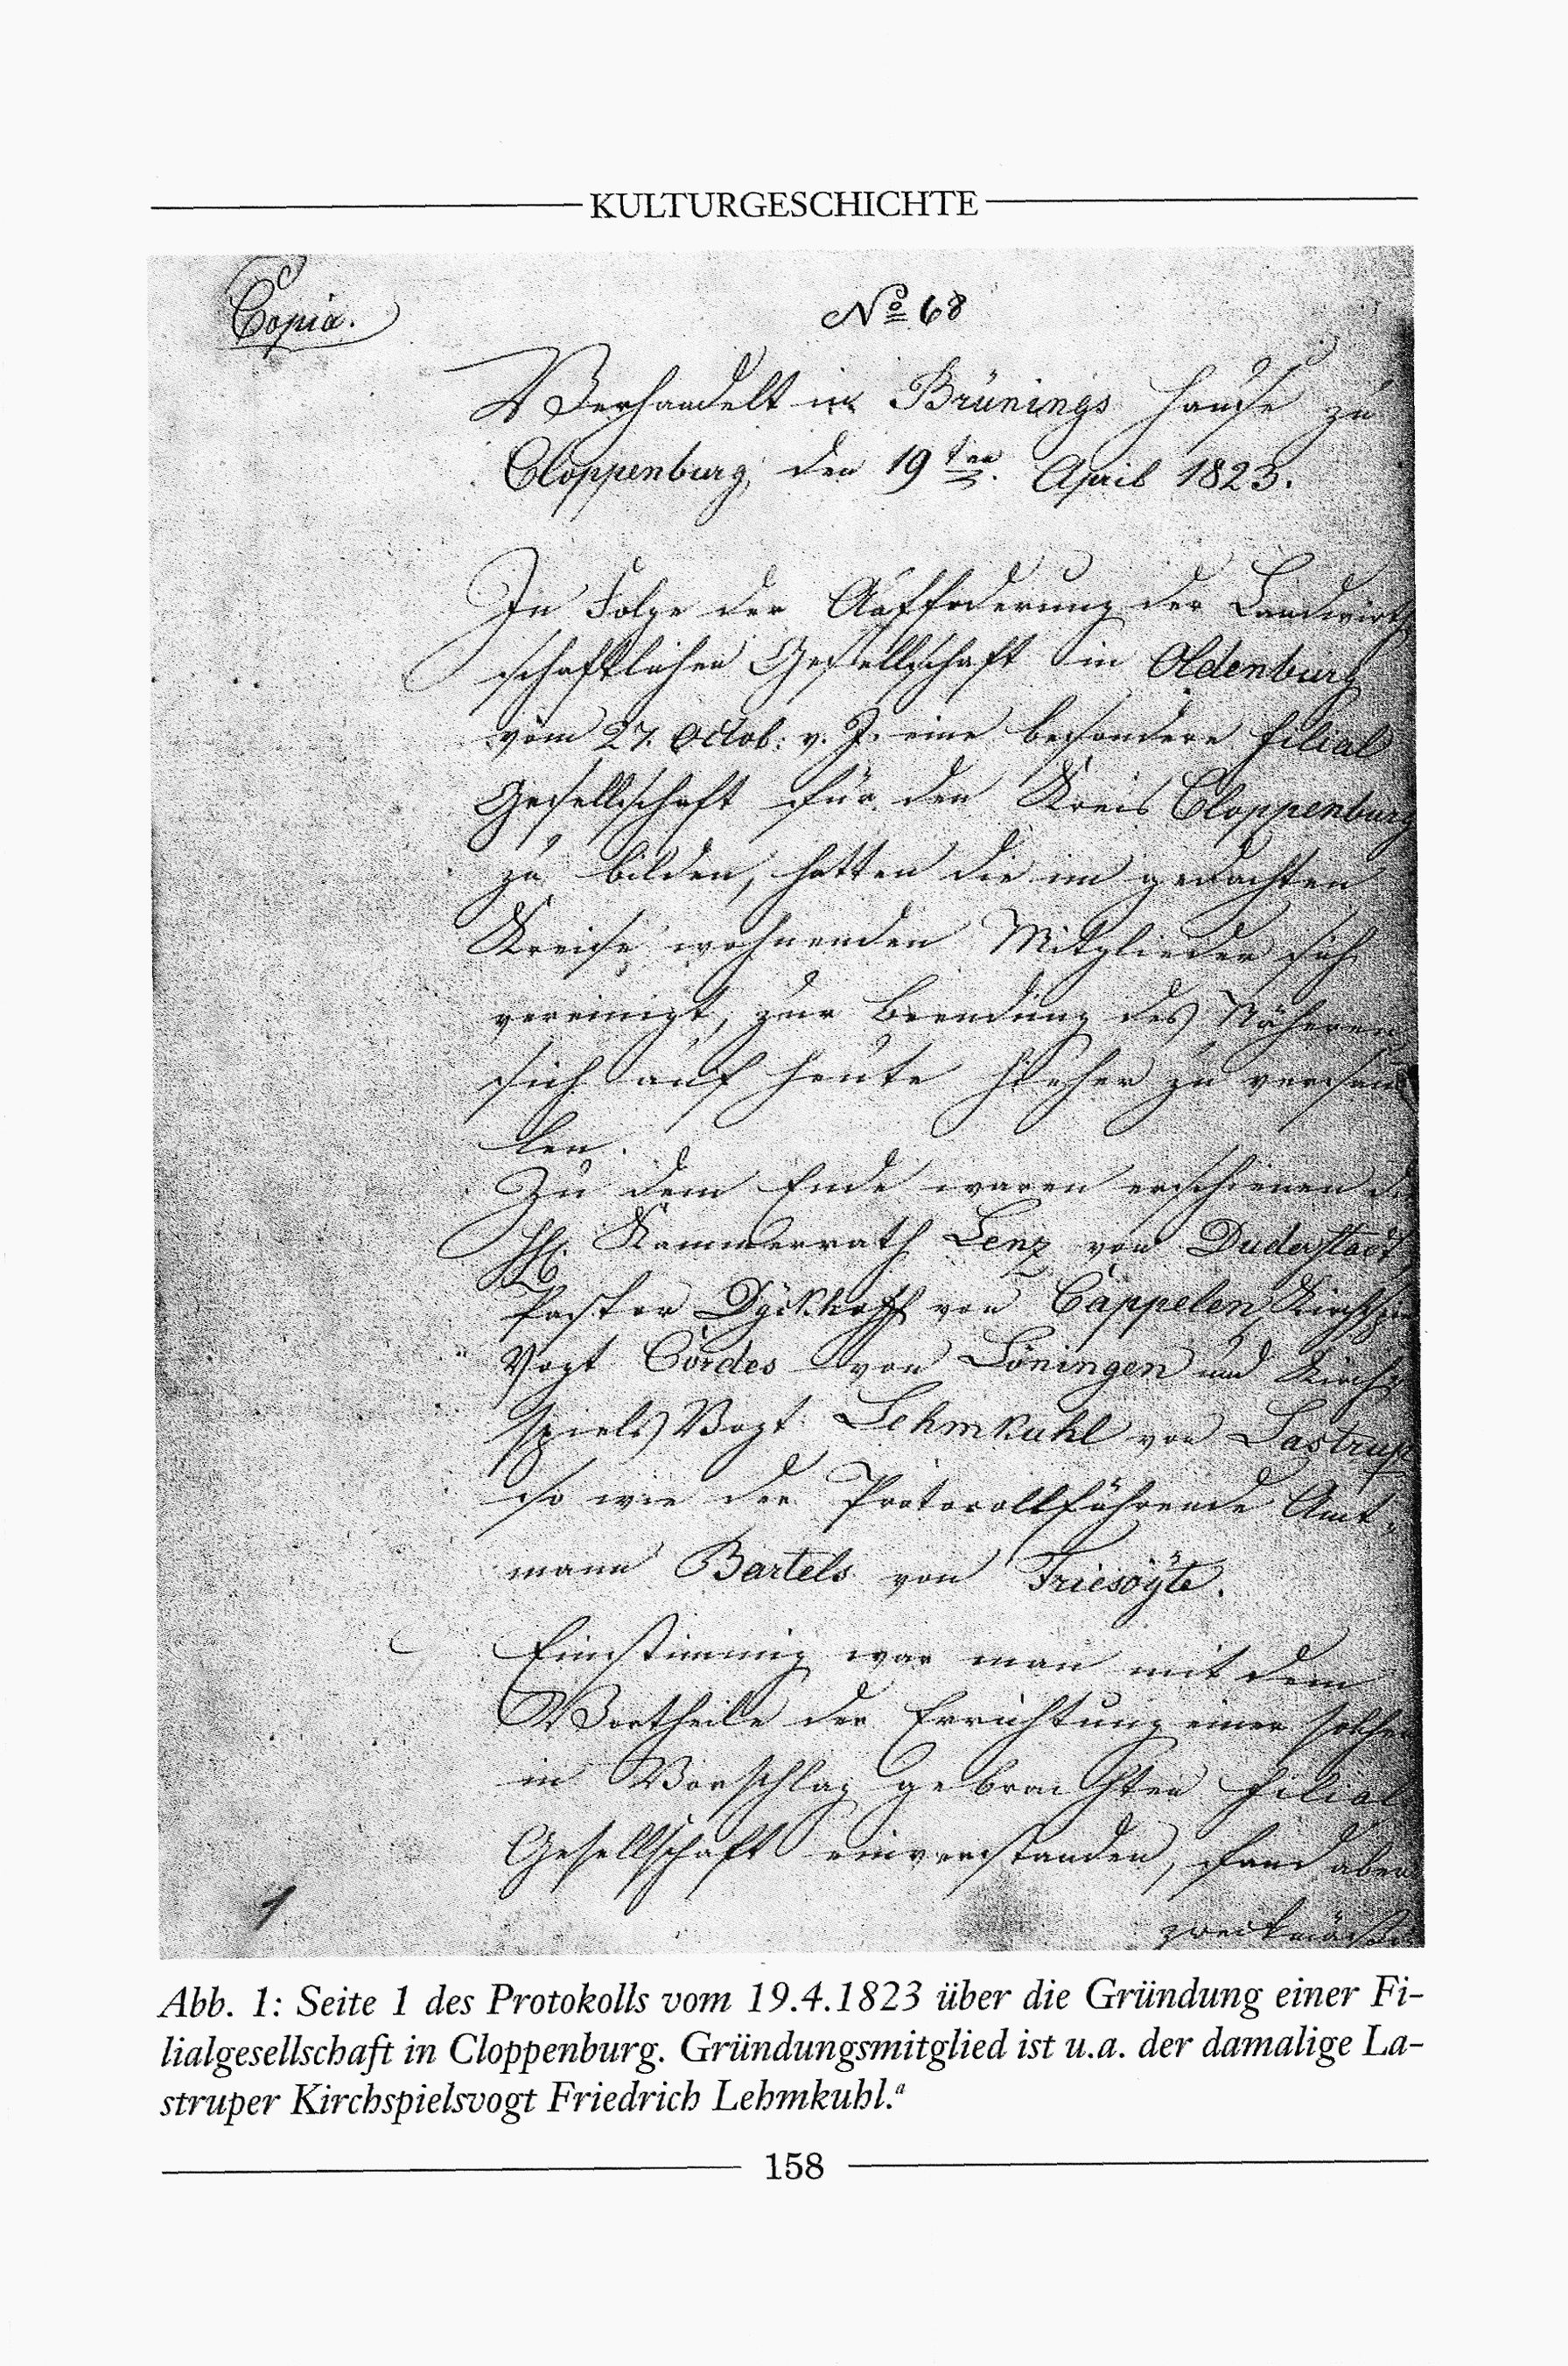 KULTURGESCHICHTE
Copia.
No 68
Verhandelt in Brünings Hause zu
Cloppenburg, den 19ten April 1823.
In Folge der Aufforderung der Landwirth
schaftlichen Gesellschaft in Oldenburg
vom 27. Octob: v. J. eine besondere Filial
Gesellschaft für den Kreis Cloppenburg
zu bilden, hatten die im gedachten
Kreise wohnenden Mitglieder sich
vereinigt, zur des Näheren
sich auf heute hieher zu versam
len.
Zu dem Ende waren erschienen die
HH. Kammerrath Lenz von Duderstadt,
Pastor Dÿckhoff von Cappelen, Kirchspiels
Vogt Cordes von Löningen und Kirch
spiels Vogt Lehmkuhl von Lastrup
so wie der Protocollführende Amt-
mann Bartels von Friesoÿte.
Einstimmig war man mit dem
Vortheile der Errichtung einer solchen
in Vorschlag gebrachten Filial
Gesellschaft einverstanden, fand aber
1
Abb. 1: Seite 1 des Protokolls vom 19.4.1823 über die Gründung einer Fi-
lialgesellschaft in Cloppenburg. Gründungsmitglied ist u.a. der damalige La-
struper Kirchspielsvogt Friedrich Lehmkuhl.a
158